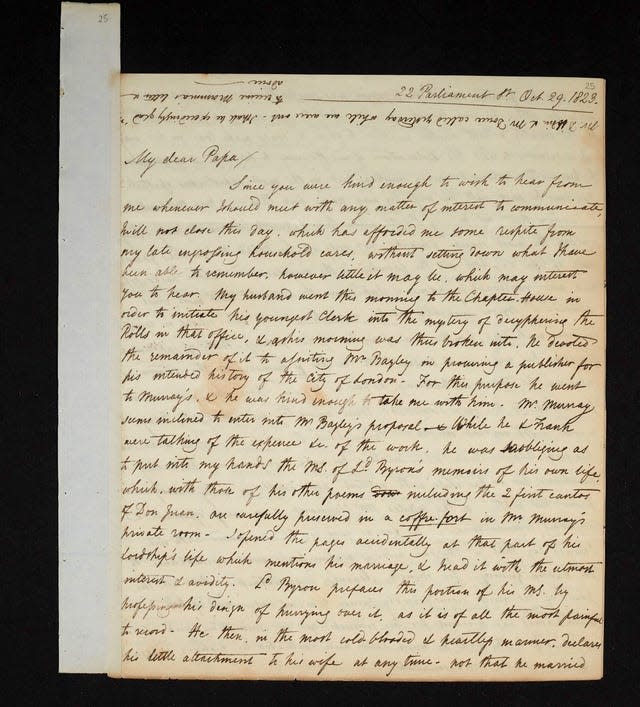 25
25
22 Parliament St. Oct. 29. 1823.
called yesterday while we were out - I shall be exceedingly glad
to receive Mamma's letter &
advice
My dear Papa/
Since you were kind enough to wish to hear from
me whenever I should meet with any matter of interest to communicate,
I will not close this day, which has afforded me some respite from
my late engrossing household cares, without setting down what I have
been able to remember, however little it may be, which may interest
you to hear. My husband went this morning to the Chapter House in
order to initiate his youngest Clerk into the mystery of decyphering the
Rolls in that office, & as his morning was thus broken into, he devoted
the remainder of it to assisting Mr Bayley in procuring a publisher for
his intended history of the City of London - For this purpose he went
to Murray's, & he was kind enough to take me with him. Mr. Murray
seems inclined to enter into Mr Bayley's proposal & While he & Frank
were talking of the expence &c. of the work, he was so obliging as
to put into my hands the MS. of Ld. Byron's memoirs of his own life,
which, with those of his other poems including the 2 first cantos
of Don Juan, are carefully preserved in a coffre-fort in Mr Murray's
private room - I opened the pages accidentally at that part of his
lordship's life which mentions his marriage, & read it with the utmost
interest & avidity. Ld Byron prefaces this portion of his MS. by
professing his design of hurrying over it, as it is of all the most painful
to record - He then, in the most cold-blooded & heartless manner, declares
his little attachment to his wife at any time - not that he married